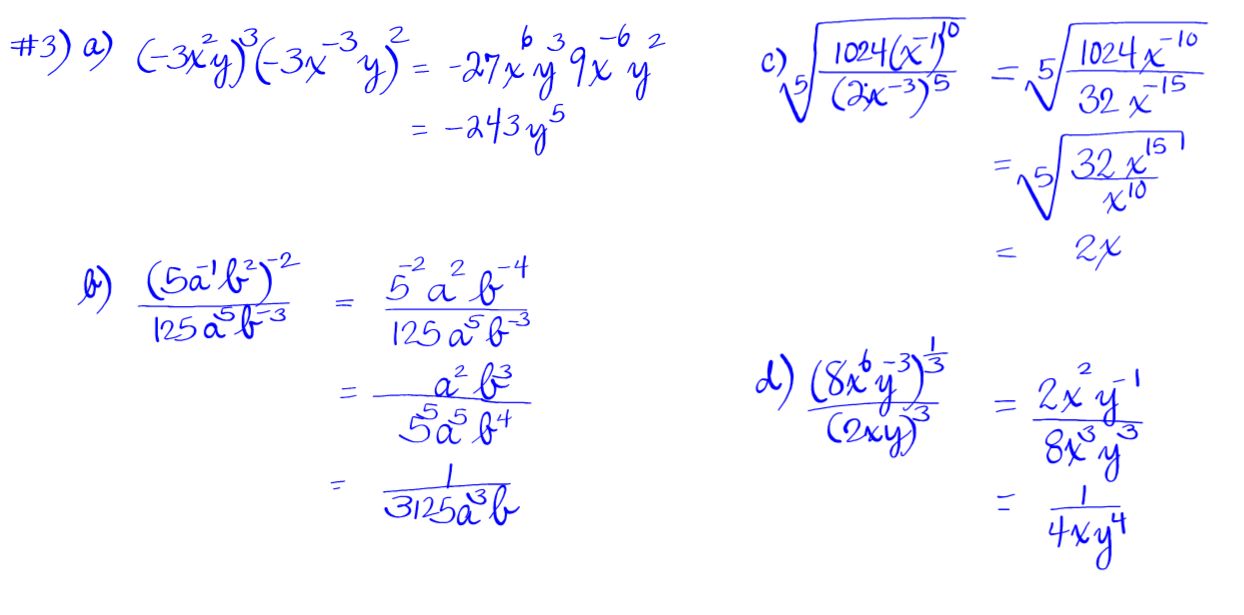 #3) a) (-3x²y)³(-3x⁻³y)² = -27x⁶y³9x⁻⁶y²
= -243y⁵
b) (5a⁻¹b²)⁻² / 125a⁵b⁻³ = 5⁻²a²b⁻⁴ / 125a⁵b⁻³
= a²b³ / 5⁵a⁵b⁴
= 1 / 3125a³b
c) ⁵√(1024(x⁻¹)¹⁰ / (2x⁻³)⁵) = ⁵√(1024x⁻¹⁰ / 32x⁻¹⁵)
= ⁵√(32x¹⁵ / x¹⁰)
= 2x
d) (8x⁶y⁻³)^(1/3) / (2xy)³ = 2x²y⁻¹ / 8x³y³
= 1 / 4xy⁴